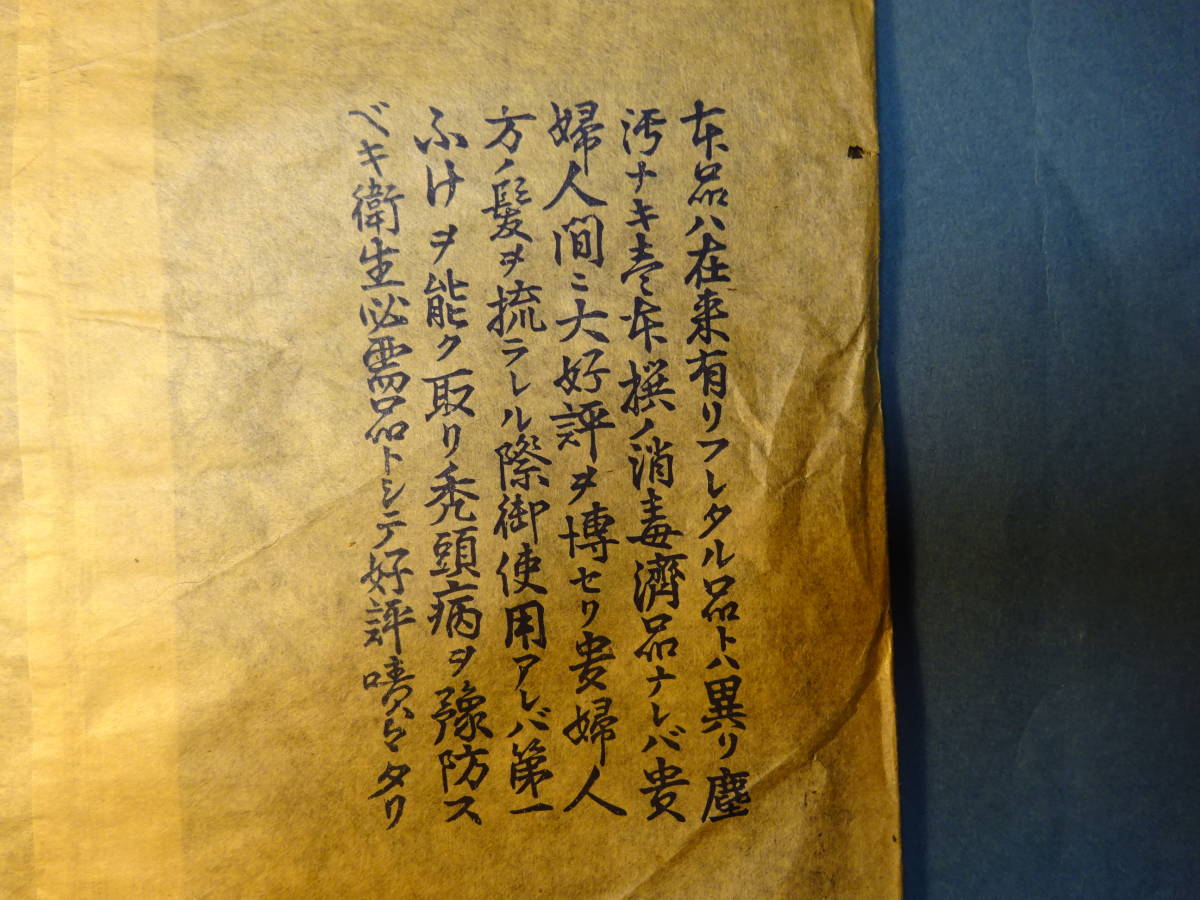 本品ハ在来有リフレタル品トハ異リ塵
汚ナキ壱本撰ノ消毒濟品ナレバ貴
婦人間ニ大好評ヲ博セリ貴婦人
方ノ髪ヲ梳ラレル際御使用アレバ第一
ふけヲ能ク取リ禿頭病ヲ豫防ス
ベキ衛生必需品トシテ好評嘖々タリ